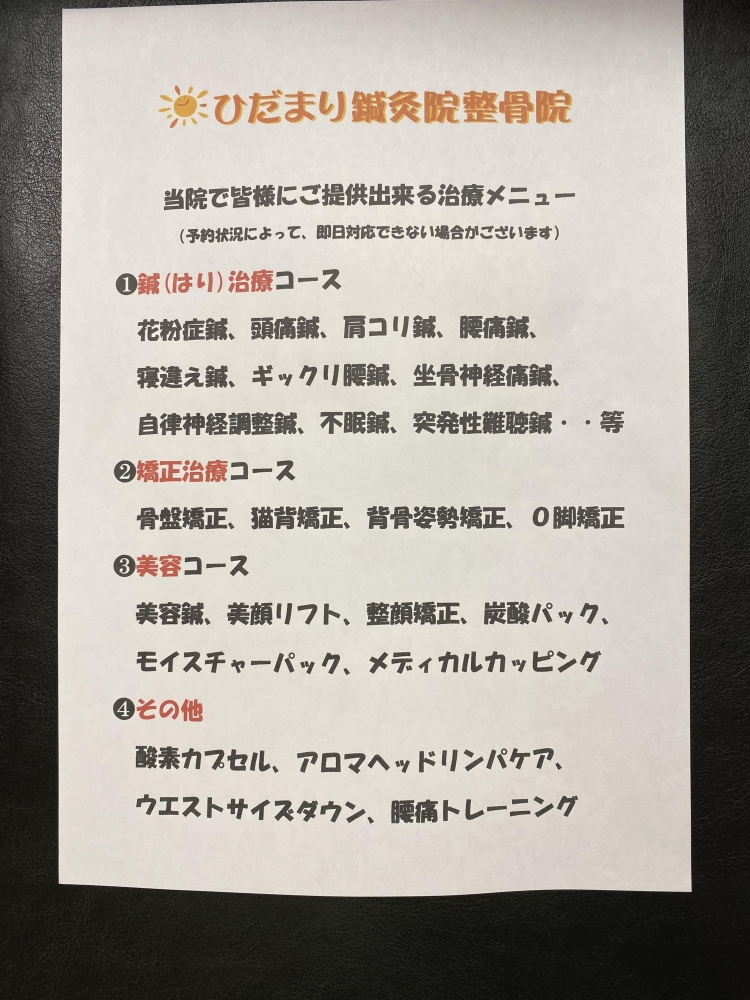 ひだまり鍼灸院整骨院
当院で皆様にご提供出来る治療メニュー
(予約状況によって、即日対応できない場合がございます)
❶鍼(はり)治療コース
花粉症鍼、頭痛鍼、肩コリ鍼、腰痛鍼、
寝違え鍼、ギックリ腰鍼、坐骨神経痛鍼、
自律神経調整鍼、不眠鍼、突発性難聴鍼・・等
❷矯正治療コース
骨盤矯正、猫背矯正、背骨姿勢矯正、O脚矯正
❸美容コース
美容鍼、美顔リフト、整顔矯正、炭酸パック、
モイスチャーパック、メディカルカッピング
❹その他
酸素カプセル、アロマヘッドリンパケア、
ウエストサイズダウン、腰痛トレーニング